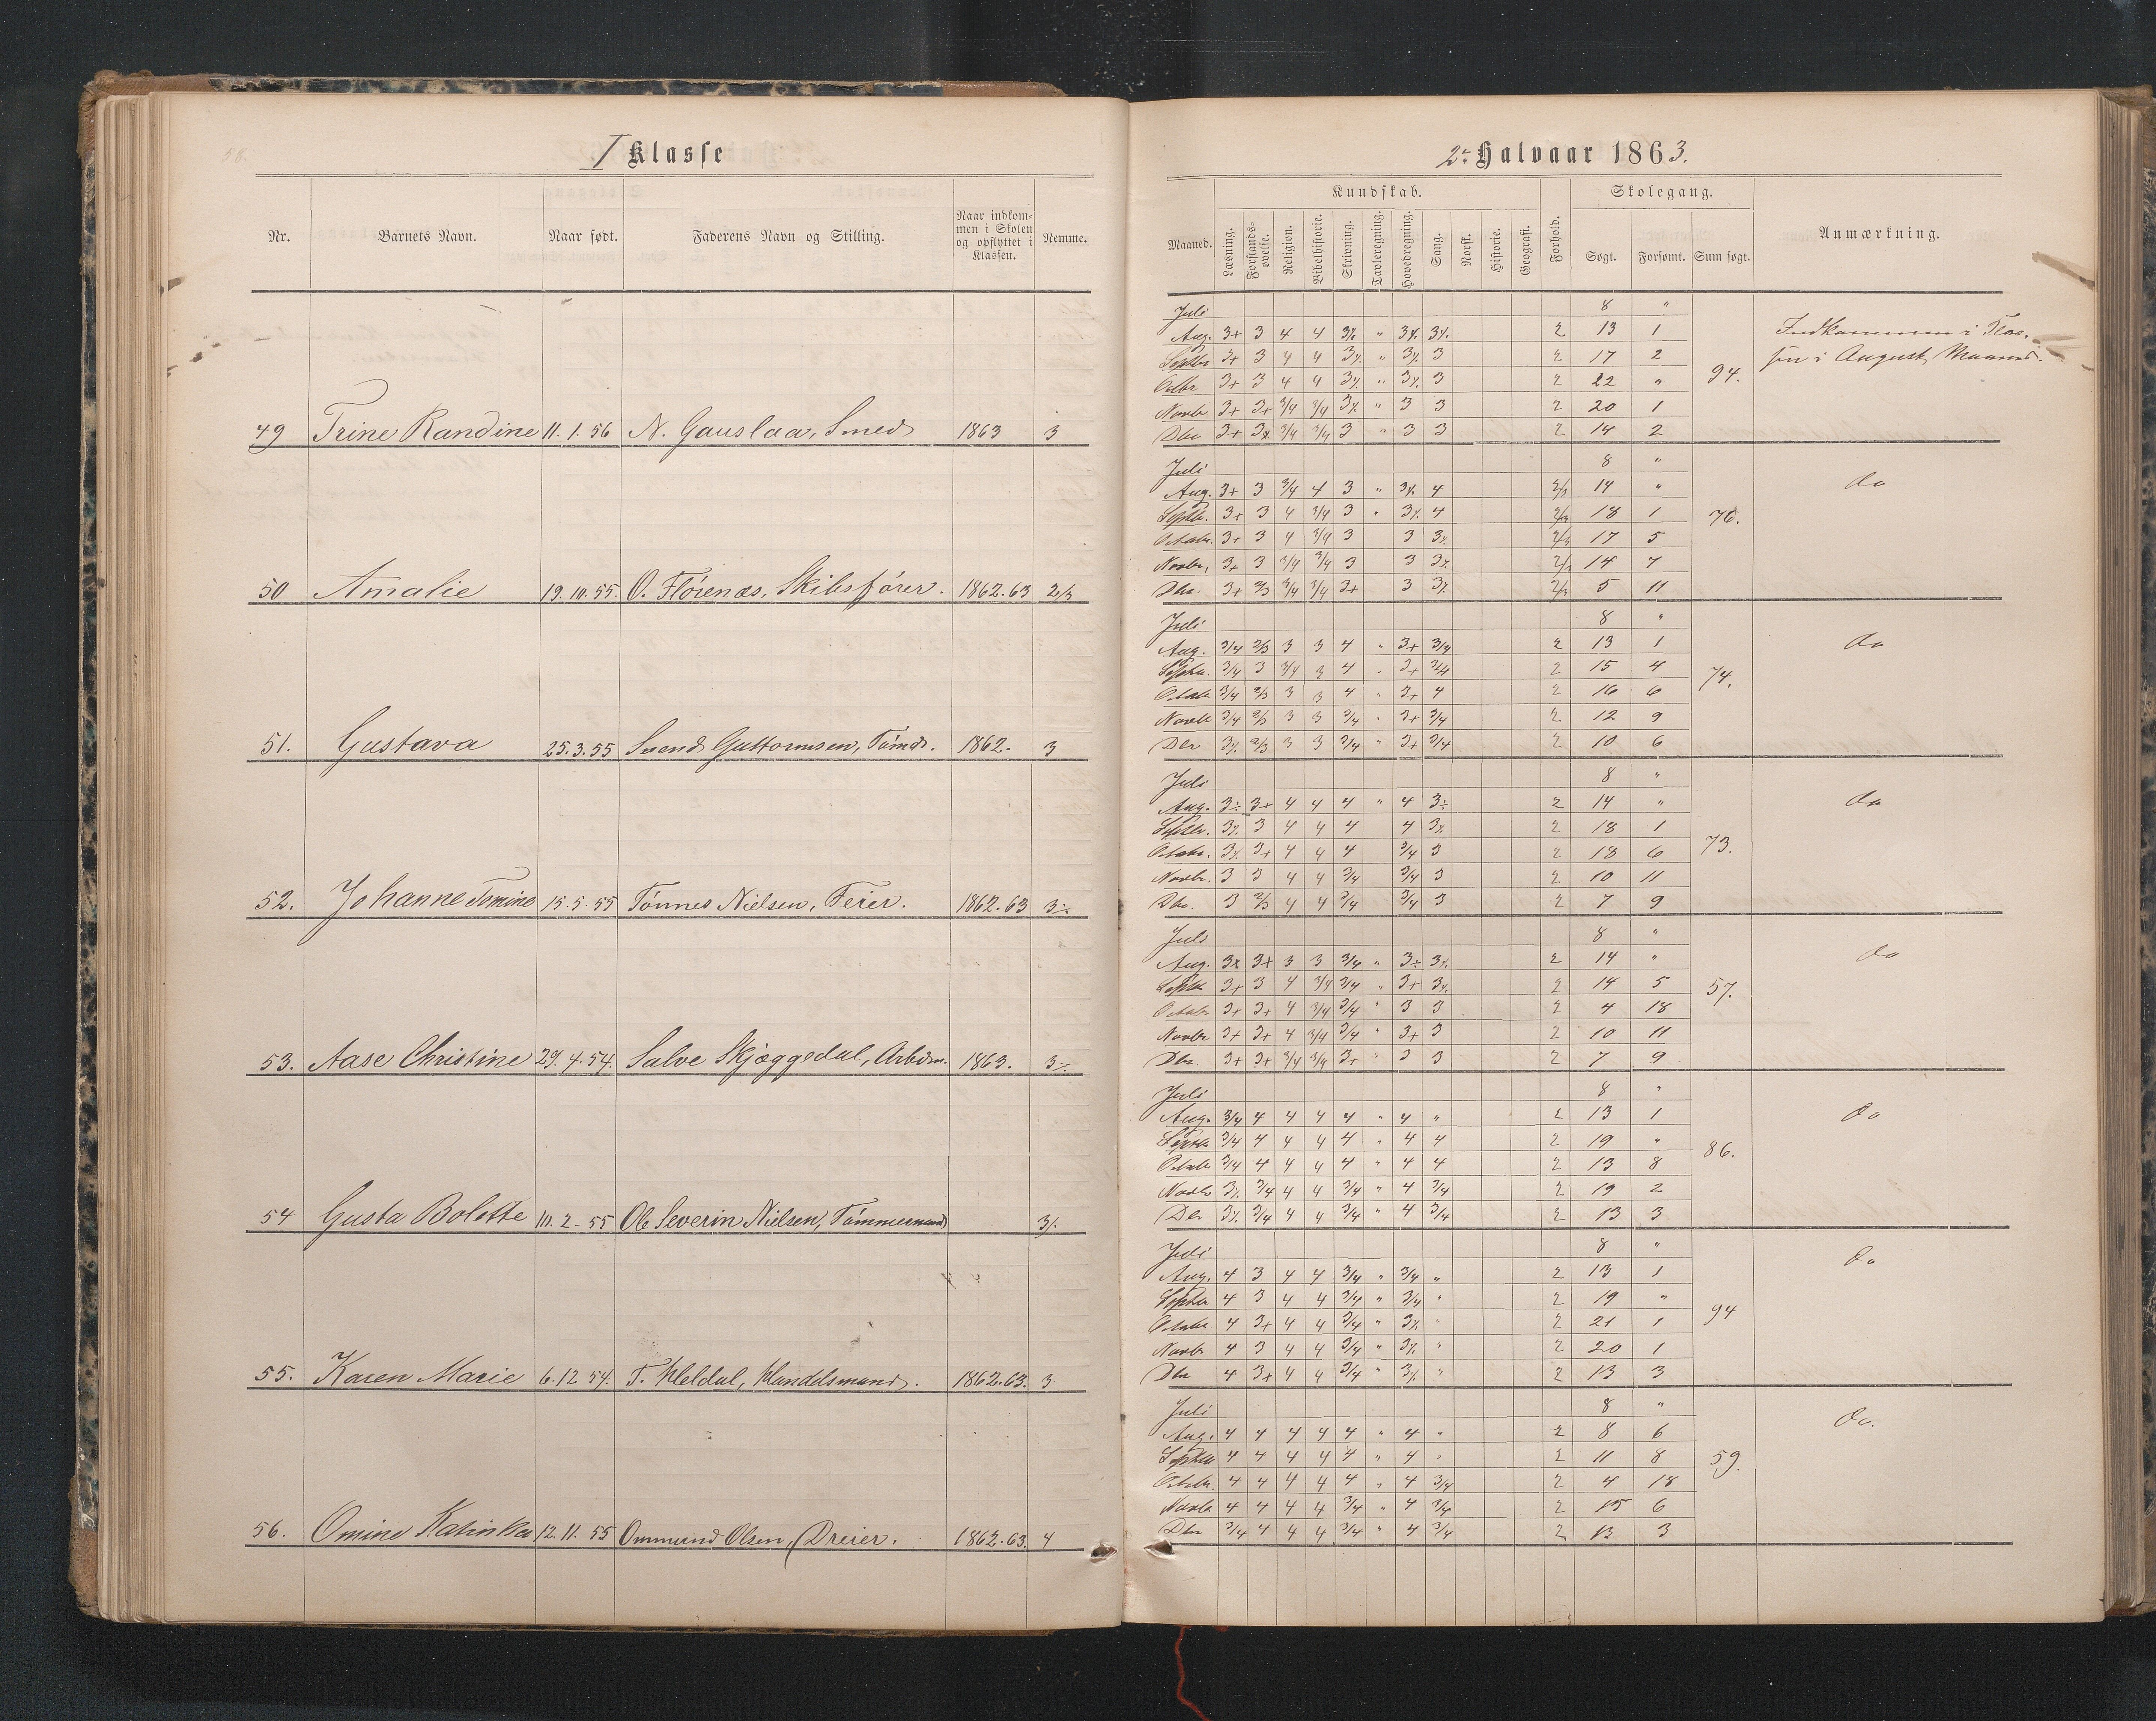 58.
I Klasse
Nr. Barnets Navn. Naar født. Faderens Navn og Stilling. Naar indkommen i Skolen og opflyttet i Klassen. Nemme.
49 Trine Randine 11. 1. 56 N. Gauslaa, Smed 1863 3
50 Amalie 19. 10. 55. O. Flörenæs, Skibsförer. 1862.63 2/3
51. Gustava 25. 3. 55 Svend Guttormsen, Tömd. 1862. 3
52. Johanne Tomine 15. 5. 55 Tönnes Nielsen, Feier. 1862.63 3÷
53. Aase Christine 29. 4. 54. Salve Skjæggedal, Arbdm. 1863. 3÷
54 Gusta Bolette 10. 2. 55 Ole Severin Nielsen, Tömmermand 3÷
55. Karen Marie 6. 12 54. T. Heldal, Handelsmand. 1862.63. 3
56. Omine Kathinka 12. 11. 55 Ommund Olsen, Dreier. 1862.63. 4
2t Halvaar 1863.
Maaned. Kundskab. Forhold. Skolegang. Anmærkning.
Læsning. Forstandsøvelse. Religion. Bibelhistorie. Skrivning. Tavleregning. Hovedregning. Sang. Norsk. Historie. Geografi. Søgt. Forsømt. Sum søgt.
Juli 8 "
Aug. 3+ 3 4 4 3÷ " 3÷ 3÷ 2 13 1 Indkommen i Klas-
Septbr 3+ 3 4 4 3÷ " 3÷ 3 2 17 2 sen i August Maaned.
Octbr 3+ 3 4 4 3÷ " 3÷ 3 2 22 " 94.
Novbr 3+ 3+ 3/4 3/4 3÷ " 3 3 2 20 1
Dbr 3+ 3÷ 3/4 3/4 3 " 3 3 2 14 2
Juli 8 "
Aug. 3+ 3 3/4 4 3 " 3÷ 4 2/3 14 " do
Septbr. 3+ 3 4 3/4 3 " 3÷ 4 2/3 18 1 76.
Octobr. 3+ 3 4 3/4 3 3 3÷ 2/3 17 5
Novbr. 3+ 3 3/4 3/4 3 3 3÷ 2/3 14 7
Dbr. 3+ 2/3 3/4 3/4 3+ 3 3÷ 2/3 5 11
Juli 8 "
Aug. 3/4 2/3 3 3 4 " 3+ 3/4 2 13 1 do
Septbr. 3/4 3 3/4 3 4 " 3+ 3/4 2 15 4 74.
Octobr 3/4 2/3 3 3 4 " 3+ 4 2 16 6
Novbr 3/4 2/3 3 3 3/4 " 3+ 3/4 2 12 9
Dbr 3÷ 2/3 3 3 3/4 " 3+ 3/4 2 10 6
Juli 8 "
Aug. 3÷ 3+ 4 4 4 " 4 3÷ 2 14 " do
Septbr. 3÷ 3 4 4 4 4 3÷ 2 18 1 73.
Octobr. 3÷ 3+ 4 4 4 3/4 3 2 18 6
Novbr. 3 3 4 4 3/4 3/4 3 2 10 11
Dbr. 3 2/3 4 4 3/4 3/4 3 2 7 9
Juli 8 "
Aug. 3+ 3+ 3 3 3/4 " 3÷ 3÷ 2 14 " do
Septbr 3+ 3 4 3/4 3/4 " 3+ 3÷ 2 14 5 57.
Octobr 3+ 3+ 4 3/4 3/4 " 3 3 2 4 18
Novbr 3+ 3+ 4 3/4 3/4 " 3+ 3 2 10 11
Dbr. 3+ 3+ 3/4 3/4 3+ " 3 3 2 7 9
Juli 8 "
Aug. 3/4 4 4 4 4 " 4 " 2 13 1 do
Septbr 3/4 4 4 4 4 " 4 4 2 19 " 86.
Octobr 3/4 4 4 4 4 " 4 4 2 13 8
Novbr 3÷ 3/4 4 4 3/4 " 4 3/4 2 19 2
Dbr 3÷ 3/4 4 4 3/4 " 4 3/4 2 13 3
Juli 8 "
Aug. 4 3 4 4 3/4 " 3/4 " 2 13 1 do
Septbr 4 3 4 4 3/4 " 3/4 " 2 19 " 94
Octobr 4 3+ 4 4 3/4 " 3÷ " 2 21 1
Novbr 4 3 4 4 3/4 " 3÷ " 2 20 1
Dbr 4 3+ 4 4 3/4 " 3÷ " 2 13 3
Juli 8 "
Aug. 4 4 4 4 4 " 4 " 2 8 6 do.
Septbr 4 4 4 4 4 " 4 " 2 11 8 59.
Octobr. 4 4 4 4 4 " 4 3/4 2 4 18
Novbr 4 4 4 4 3/4 " 4 3/4 2 15 6
Dbr 3/4 4 4 4 3/4 " 4 3/4 2 13 3